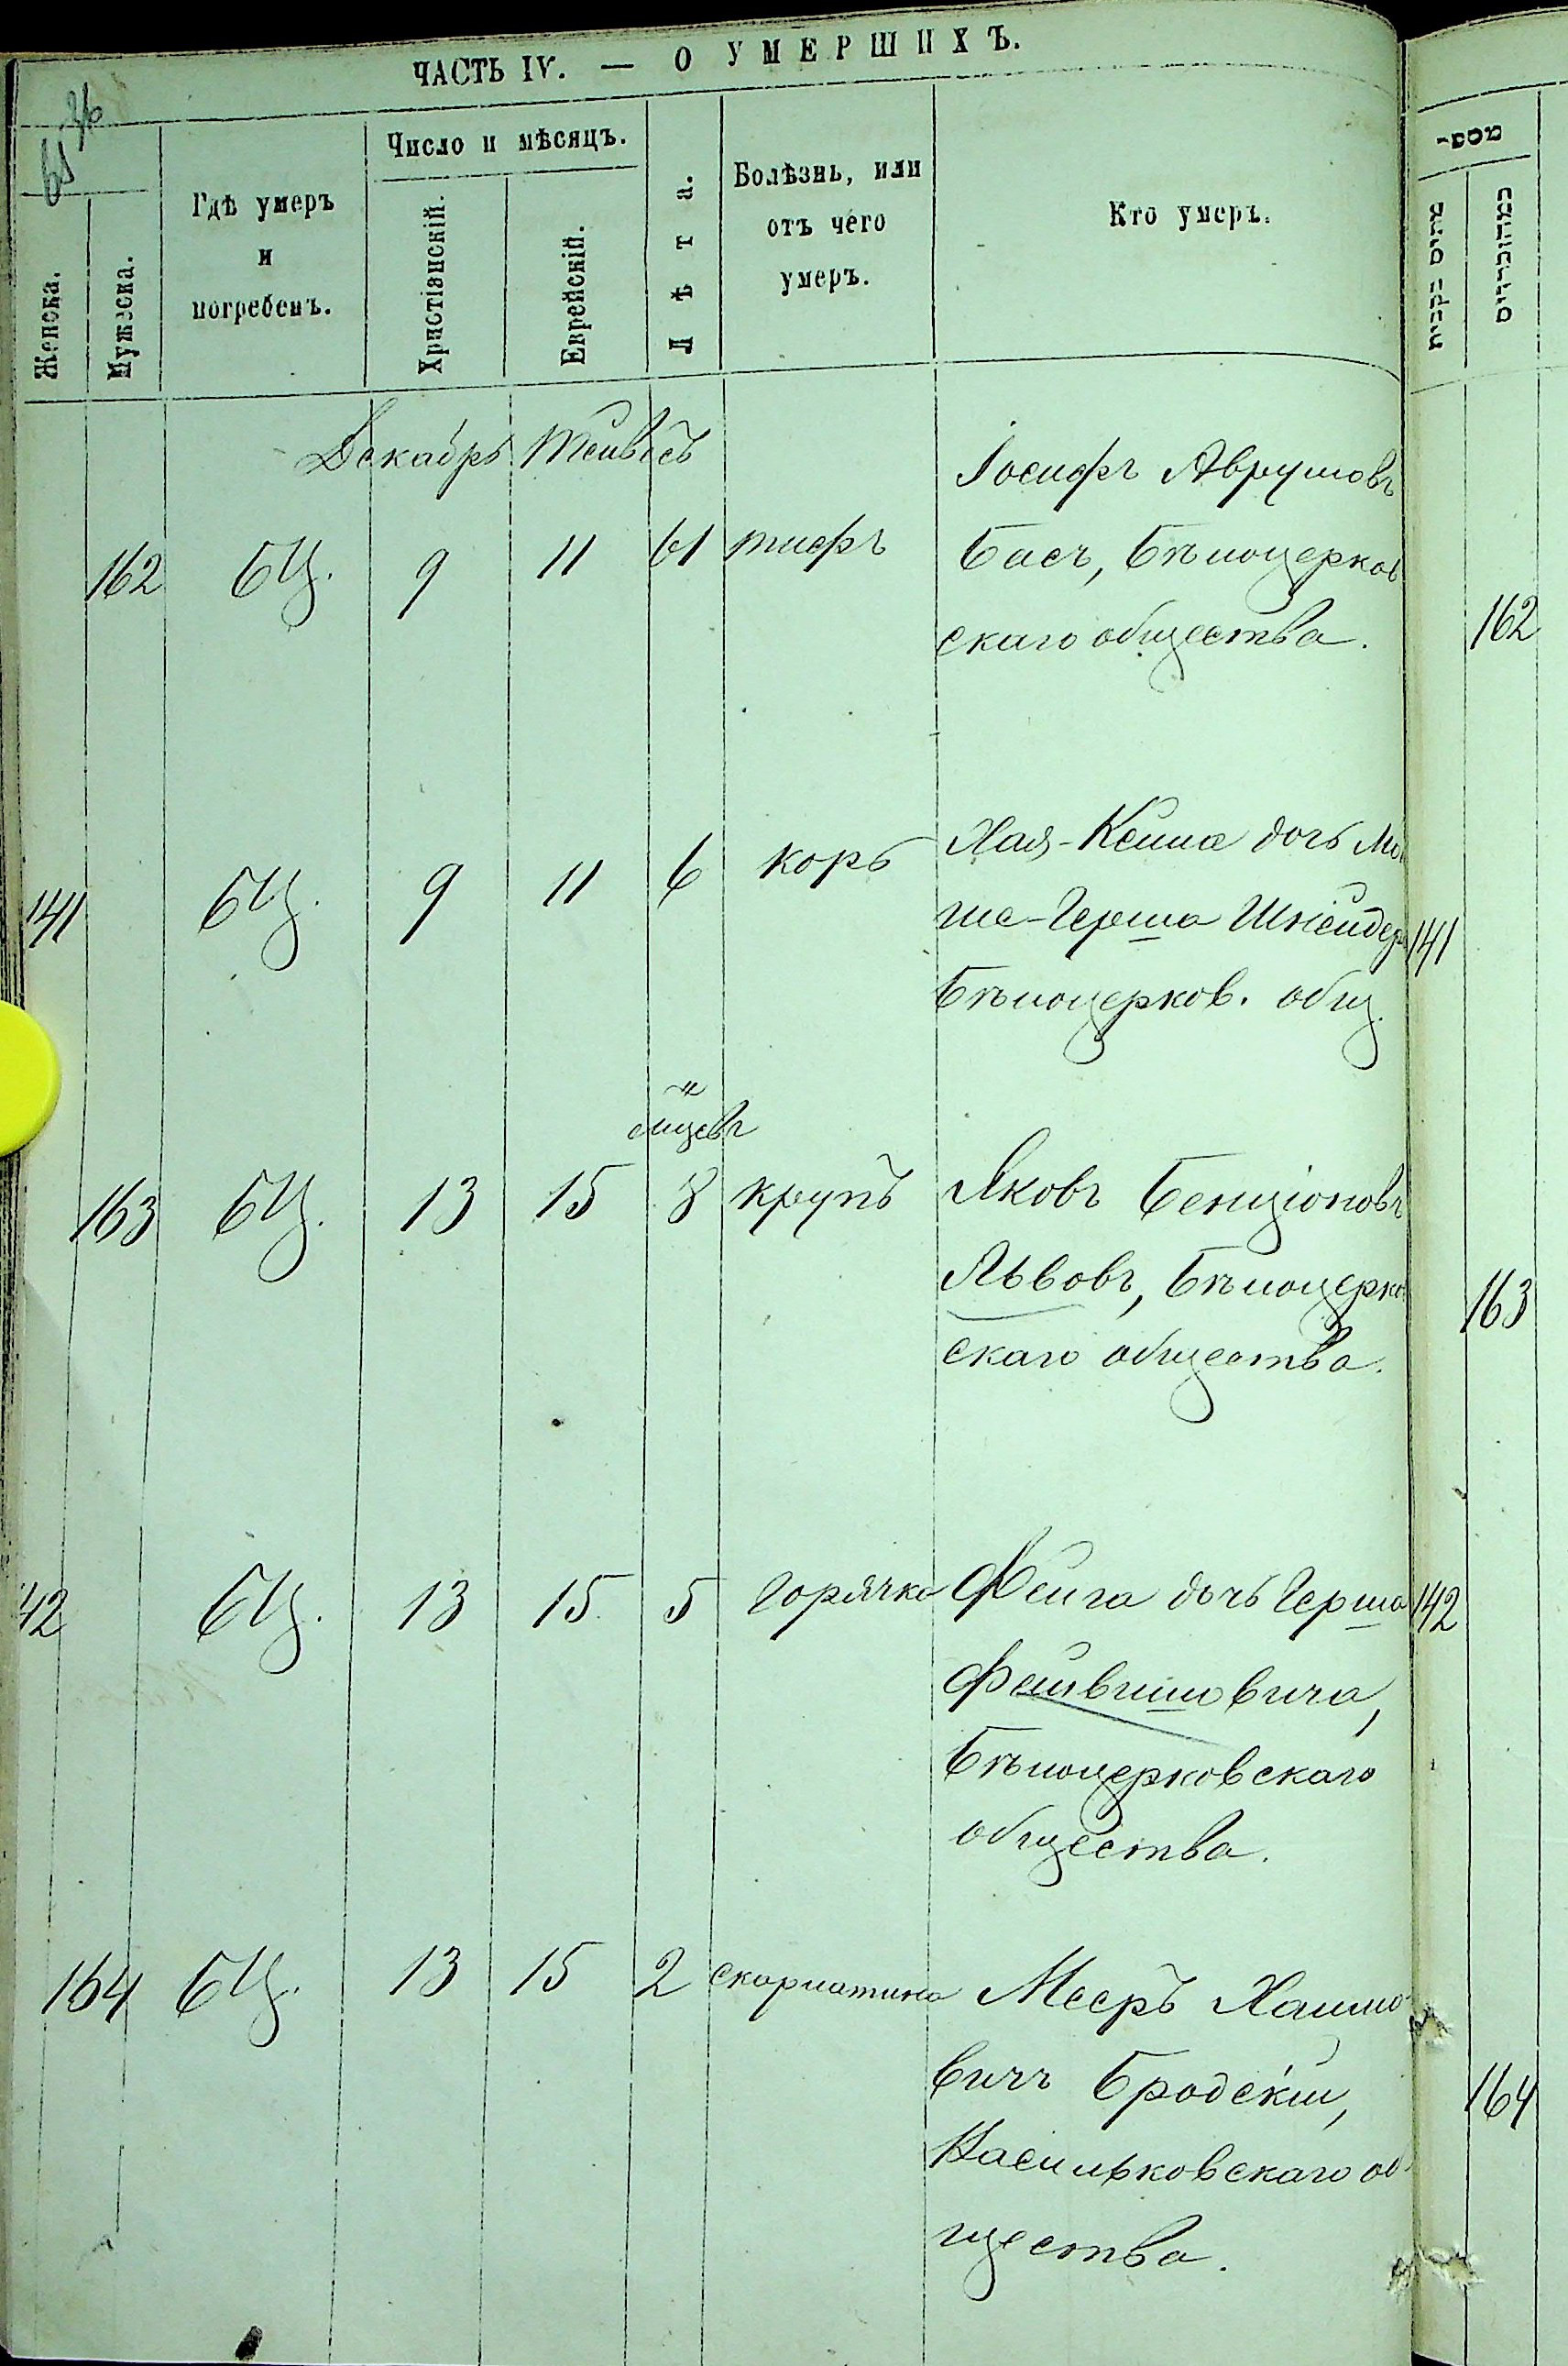 ЧАСТЬ IV. — О УМЕРШИХЪ.
Женска.
Мужеска.
Гдѣ умеръ
и
погребенъ.
Число и мѣсяцъ.
Христіанскій.
Еврейскій.
Лѣта.
Болѣзнь, или
отъ чего
умеръ.
Кто умеръ.
מספ-
מתים נקבות
Декабрь Тейвесъ
162 БЦ. 9 11 61 тифъ Іосифъ Аврумовъ
Басъ, Бѣлоцерков
скаго общества.
162
141 БЦ. 9 11 6 корь Хая-Кейла дочь Мо
ше-Герша Шнейдера
Бѣлоцерков. общ.
141
мѣсяцевъ
163 БЦ. 13 15 8 крупъ Яковъ Бенціоновъ
Львовъ, Бѣлоцерко
скаго общества.
163
142 БЦ. 13 15 5 горячка Фейга дочь Герша
Фейвишовича,
Бѣлоцерковскаго
общества.
142
164 БЦ. 13 15 2 скарлатина Мееръ Хаимо
вичъ Бродскій,
Васильковскаго об
щества.
164